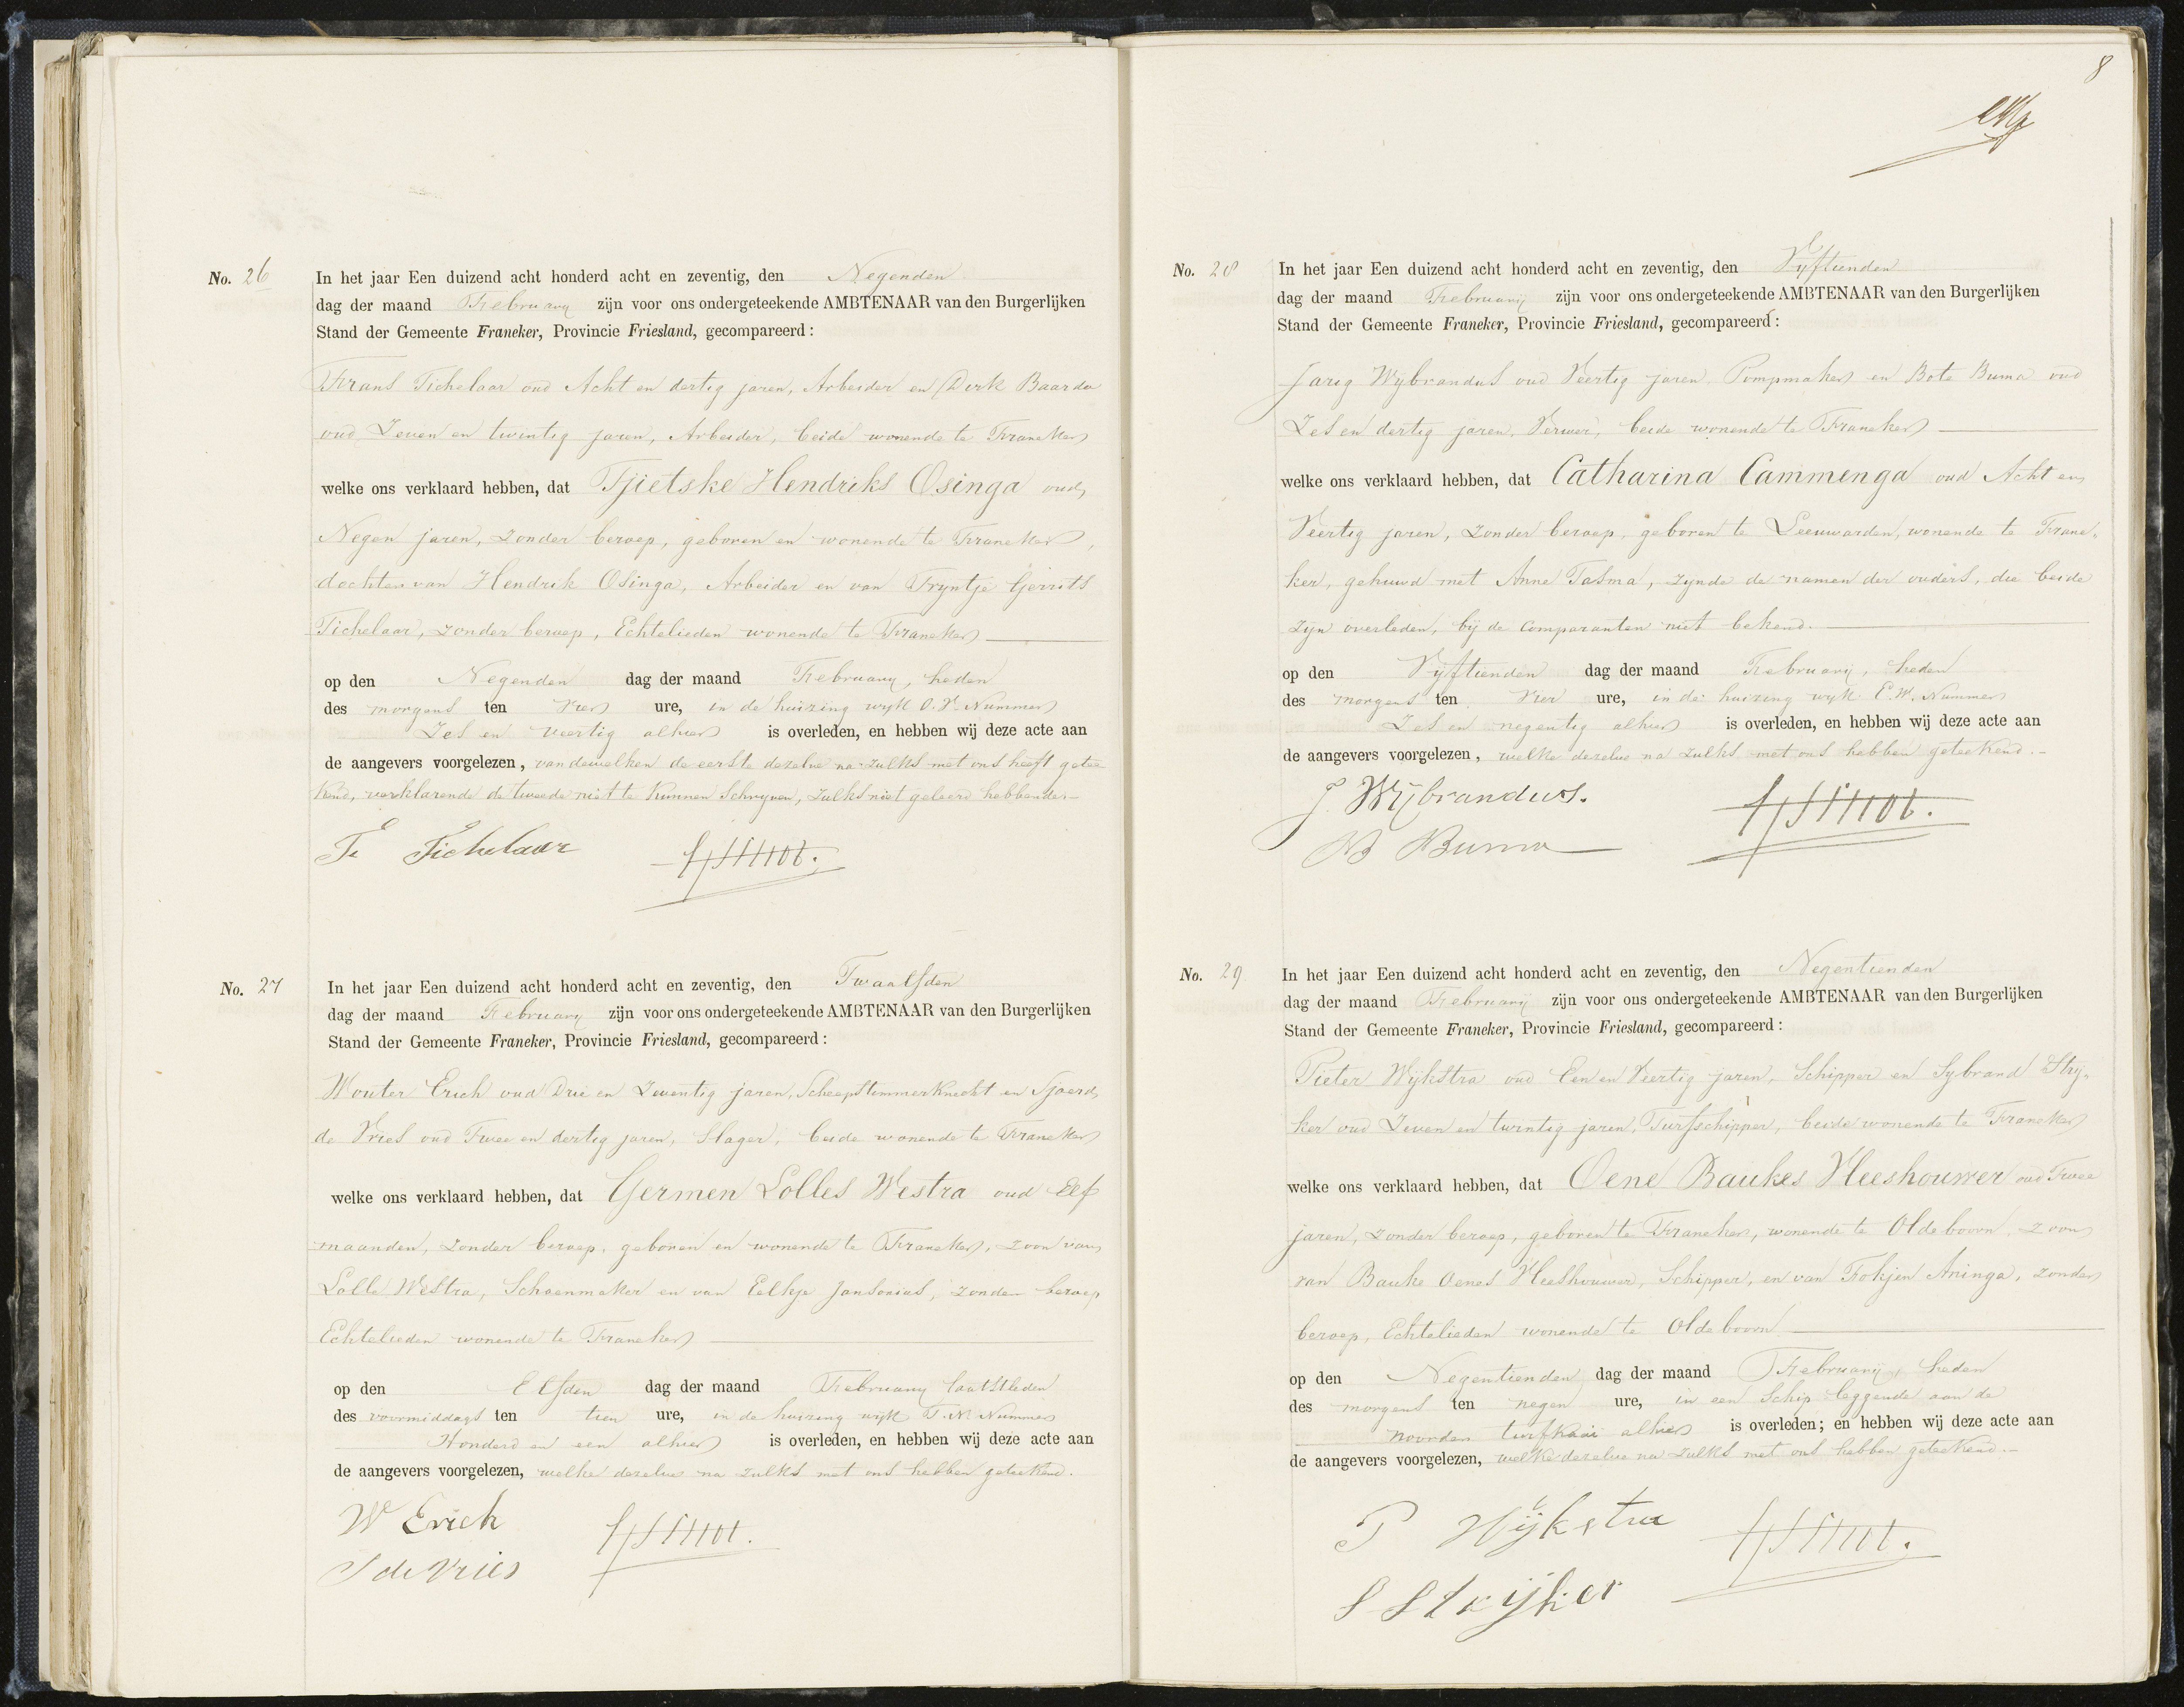 No. 26
In het jaar Een duizend acht honderd acht en zeventig, den Negenden
dag der maand February zijn voor ons ondergeteekende AMBTENAAR van den Burgerlijken
Stand der Gemeente Franeker, Provincie Friesland, gecompareerd:
Frans Tichelaar oud Acht en dertig jaren, Arbeider en Dirk Baarda
oud Zeven en twintig jaren, Arbeider, beide wonende te Franeker
welke ons verklaard hebben, dat Tjietske Hendriks Osinga oud
Negen jaren, zonder beroep, geboren en wonende te Franeker,
dochter van Hendrik Osinga, Arbeider en van Tryntje Gerrits
Tichelaar, zonder beroep, Echtelieden wonende te Franeker
op den Negenden dag der maand February, heden
des morgens ten vier ure, in de huizing wyk O.V. Nummer
Zes en veertig alhier is overleden, en hebben wij deze acte aan
de aangevers voorgelezen, van dewelken de eerste dezelve na zulks met ons heeft getee
kend, verklarende de tweede niet te kunnen Schryven, zulks niet geleerd hebbende.
Tichelaar
No. 27
In het jaar Een duizend acht honderd acht en zeventig, den Twaalfden
dag der maand February zijn voor ons ondergeteekende AMBTENAAR van den Burgerlijken
Stand der Gemeente Franeker, Provincie Friesland, gecompareerd:
Wouter Erich oud Drie en Zeventig jaren, Scheepstimmerknecht en Sjoerd
de Vries oud Twee en dertig jaren, Slager, beide wonende te Franeker
welke ons verklaard hebben, dat Germen Lolles Westra oud Elf
maanden, zonder beroep, geboren en wonende te Franeker, zoon van
Lolle Westra, Schoenmaker en van Eelkje Jansonius, zonder beroep
Echtelieden wonende te Franeker
op den Elfden dag der maand February laatstleden
des voormiddags ten tien ure, in de huizing wyk T.M. Nummer
Honderd en een alhier is overleden, en hebben wij deze acte aan
de aangevers voorgelezen, welke dezelve na zulks met ons hebben geteekend.
W Erich
S de Vries
8
No. 28
In het jaar Een duizend acht honderd acht en zeventig, den Vyftienden
dag der maand Februarij zijn voor ons ondergeteekende AMBTENAAR van den Burgerlijken
Stand der Gemeente Franeker, Provincie Friesland, gecompareerd:
Jarig Wybrandus oud Veertig jaren Pompmaker en Bote Buma oud
Zes en dertig jaren, Verwer, beide wonende te Franeker
welke ons verklaard hebben, dat Catharina Cammenga oud Acht en
Veertig jaren, zonder beroep, geboren te Leeuwarden, wonende te Frane-
ker, gehuwd met Anne Tasma, zynde de namen der ouders, die beide
zyn overleden, bij de Comparanten niet bekend.
op den Vijftienden dag der maand Februarij, heden
des morgens ten Vier ure, in de huizing wyk E.W. Nummer
Zes en negentig alhier is overleden, en hebben wij deze acte aan
de aangevers voorgelezen, welke dezelve na zulks met ons hebben geteekend.
J. Wijbrandus.
B Buma
No. 29
In het jaar Een duizend acht honderd acht en zeventig, den Negentienden
dag der maand Februarij zijn voor ons ondergeteekende AMBTENAAR van den Burgerlijken
Stand der Gemeente Franeker, Provincie Friesland, gecompareerd:
Pieter Wijkstra oud Een en Veertig jaren, Schipper en Sybrand Stry-
ker oud Zeven en twintig jaren, Turfschipper, beide wonende te Franeker
welke ons verklaard hebben, dat Oene Baukes Vleeshouwer oud Twee
jaren, zonder beroep, geboren te Franeker, wonende te Oldeboorn, zoon
van Bauke Oenes Vleeshouwer, Schipper, en van Fokjen Aninga, zonder
beroep, Echtelieden wonende te Oldeboorn
op den Negentienden dag der maand Februarij, heden
des morgens ten negen ure, in een Schip leggende aan de
noorder turfkaai alhier is overleden; en hebben wij deze acte aan
de aangevers voorgelezen, welke dezelve na zulks met ons hebben geteekend.
P Wijkstra
S Strijker